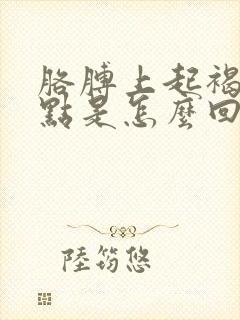 胳膊上起褐
點是怎麼回
陸筠悠